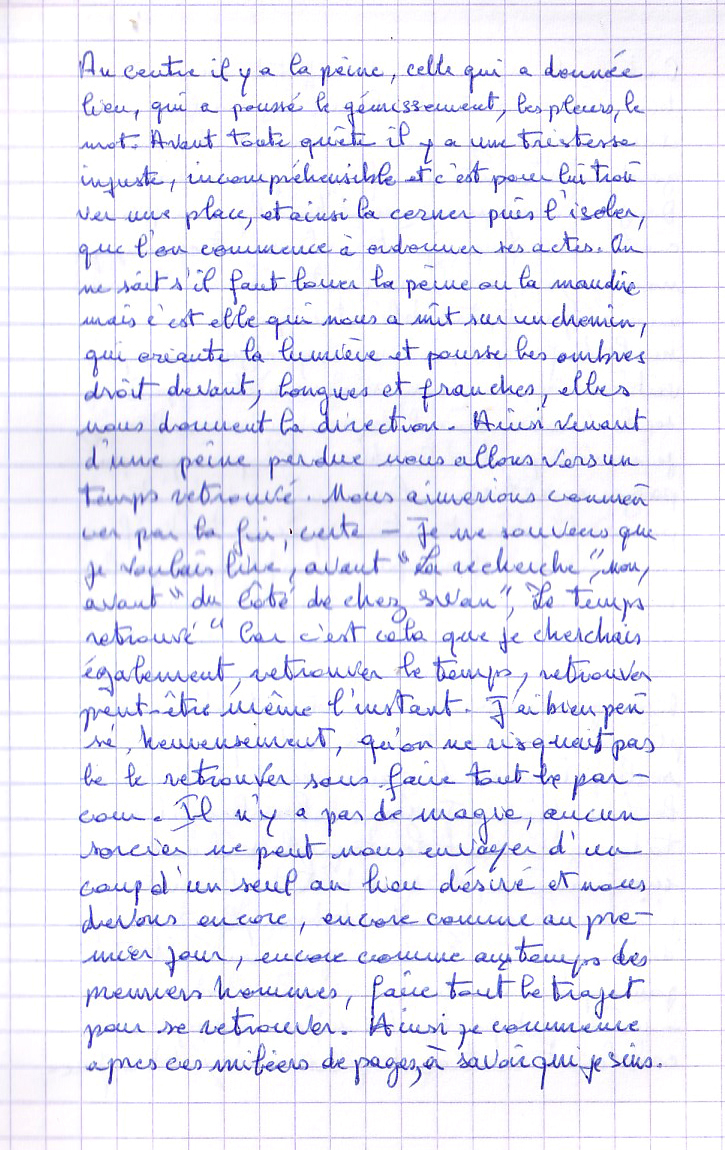 Au centre il y a la peine, celle qui a donnée
lieu, qui a poussé le gémissement, les pleurs, le
mot. Avant toute quête il y a une tristesse
injuste, incompréhensible et c'est pour lui trou
ver une place, et ainsi la cerner puis l'isoler,
que l'on commence à ordonner ses actes. On
ne sait s'il faut louer la peine ou la maudire
mais c'est elle qui nous a mit sur un chemin,
qui oriante la lumière et pousse les ombres
droit devant, longues et franches, elles
nous donnent la direction. Ainsi venant
d'une peine perdue nous allons vers un
temps retrouvé. Nous aimerions commen
cer par la fin, certe – Je me souviens que
je voulais lire, avant "La recherche", non,
avant "du côté de chez swan", "Le temps
retrouvé" Car c'est cela que je cherchais
également, retrouver le temps, retrouver
peut-être même l'instant. J'ai bien pen
sé, heureusement, qu'on ne risquait pas
de le retrouver sans faire tout le par-
cour. Il n'y a pas de magie, aucun
sorcier ne peut nous envoyer d'un
coup d'un seul au lieu désiré et nous
devons encore, encore comme au pre-
mier jour, encore comme aux temps des
premiers hommes, faire tout le trajet
pour se retrouver. Ainsi je commence
apres ces milliers de pages, à savoir qui je suis.